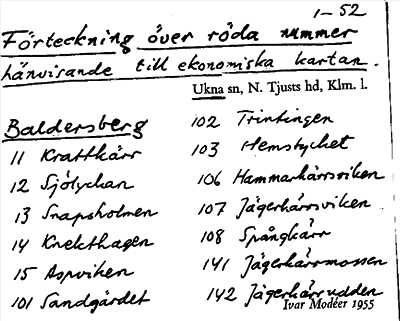 1-52
Förteckning över röda nummer
hänvisande till ekonomiska kartan.
Ukna sn, N. Tjusts hd, Klm. l.
Baldersberg
11 Krattkärr
12 Sjölyckan
13 Snapsholmen
14 Knekthagen
15 Aspviken
101 Sandgärdet
102 Trintingen
103 Hemstycket
106 Hammarkärrsviken
107 Jägerkärrsviken
108 Spångkärr
141 Jägerkärrmossen
142 Jägerkärrudden
Ivar Modéer 1955